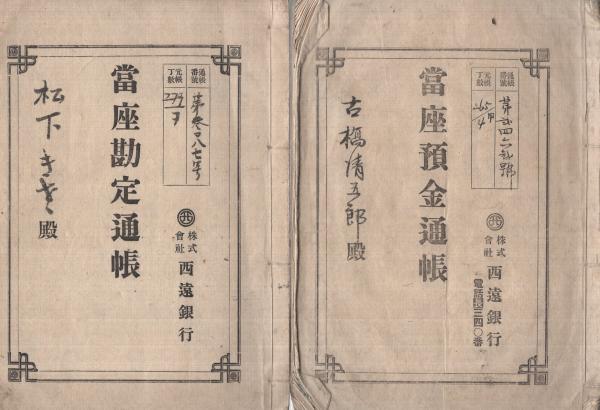 通帳番號
元帳丁數
第参〇八七号
279
ヲ
當座勘定通帳
株式會社
西遠銀行
殿
松下きせ
通帳番號
元帳丁數
當座預金通帳
株式會社
西遠銀行
電話長三四〇番
古橋清五郎
殿